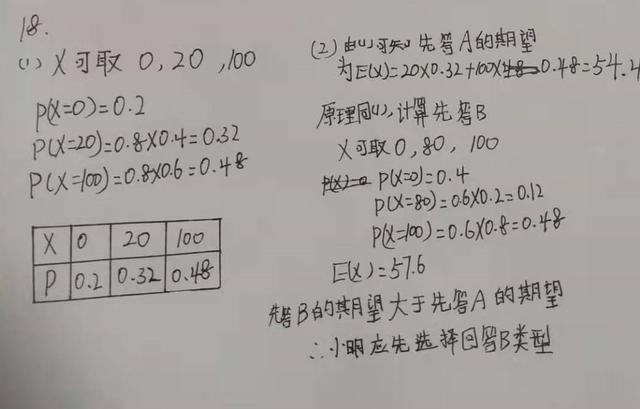 18.
(1) X可取 0, 20, 100
P(X=0)=0.2
P(X=20)=0.8×0.4=0.32
P(X=100)=0.8×0.6=0.48
X 0 20 100
P 0.2 0.32 0.48
(2) 由(1)可知 先答A的期望
为E(X)=20×0.32+100×0.48=54.4
原理同(1), 计算先答B
X可取0, 80, 100
P(X=0)=0.4
P(X=80)=0.6×0.2=0.12
P(X=100)=0.6×0.8=0.48
E(X)=57.6
先答B的期望大于先答A的期望
∴小明应先选择回答B类型